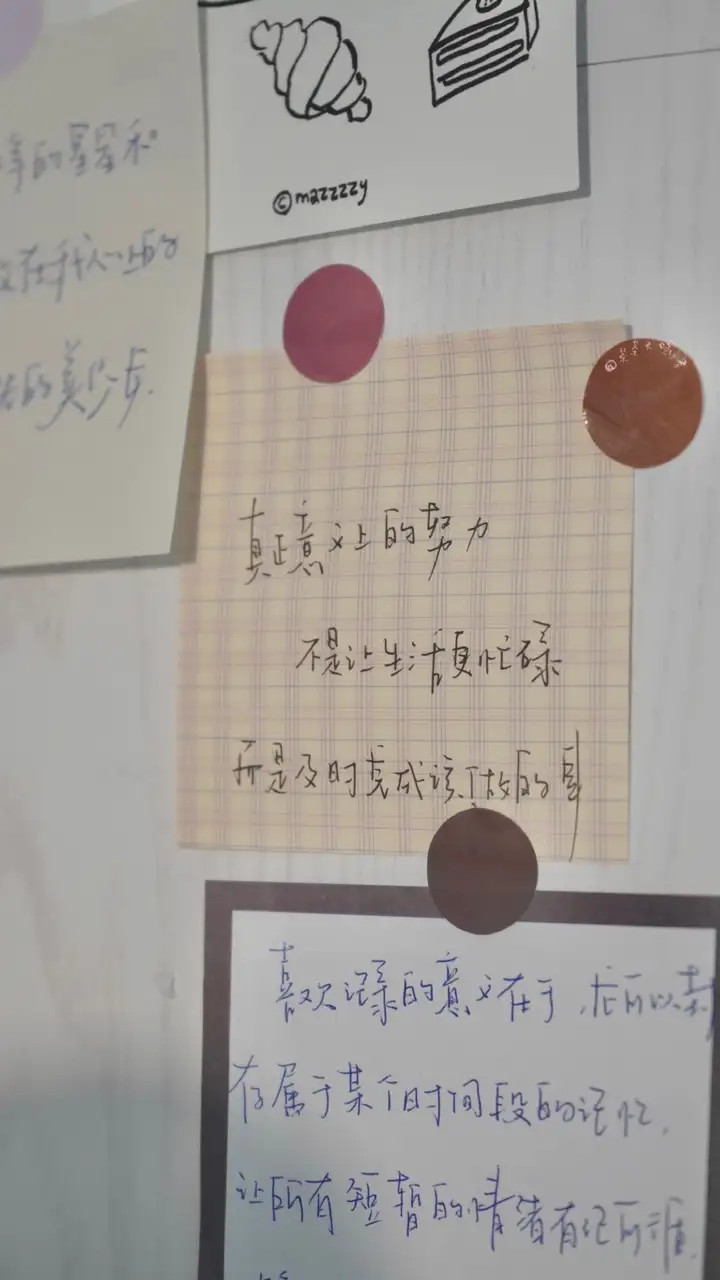 ©mazzzzy
的星星和
在我心上的
的美少女.
真正意义上的努力
不是让生活更忙碌
而是及时完成该做的事
喜欢记录的意义在于,
存属于某个时间段的记忆,
让所有短暂的情绪有迹可